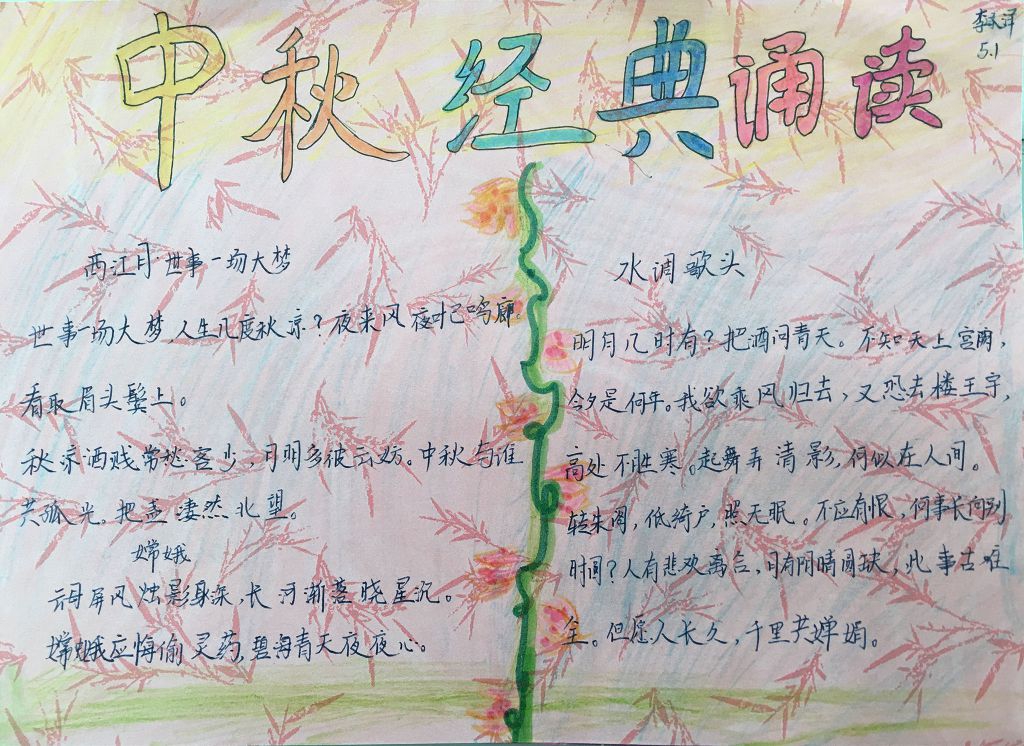 中秋经典诵读
5.1
西江月·世事一场大梦
世事一场大梦,人生几度秋凉?夜来风夜忆鸣廊。
看取眉头鬓上。
秋凉酒贱常愁客少,月明多彼云妨。中秋与谁
共孤光。把盏凄然北望。
嫦娥
母屏风烛影深,长河渐落晓星沉。
嫦娥应悔偷灵药,碧海青天夜夜心。
水调歌头
明月几时有?把酒问青天。不知天上宫阙,
今夕是何年。我欲乘风归去,又恐去楼王宇,
高处不胜寒。起舞弄清影,何似在人间。
转朱阁,低绮户,照无眠。不应有恨,何事长向别
时圆?人有悲欢离合,月有阴晴圆缺,此事古难
全。但愿人长久,千里共婵娟。